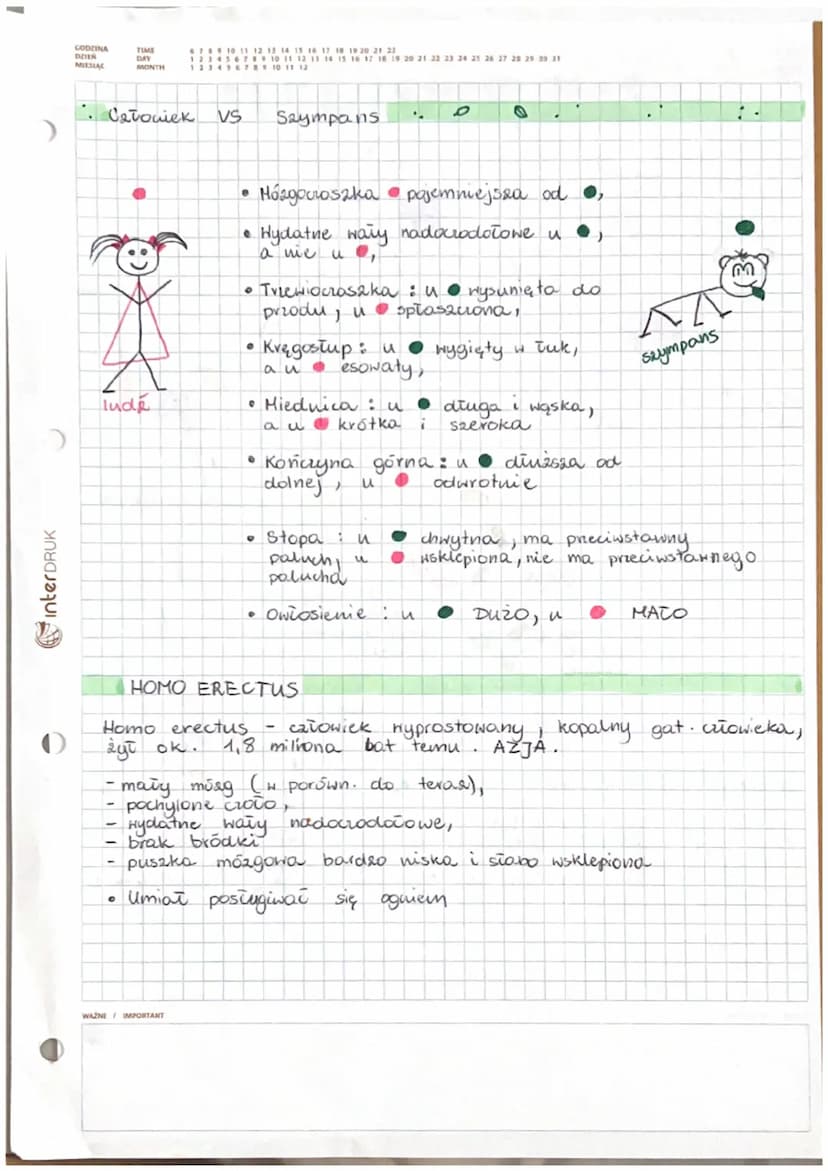 GODZINA TIME 6 7 8 9 10 11 12 13 14 15 16 17 18 19 20 21 22
DZIEŃ DAY 1 2 3 4 5 6 7 8 9 10 11 12 13 14 15 16 17 18 19 20 21 22 23 24 25 26 27 28 29 30 31
MIESIĄC MONTH 1 2 3 4 5 6 7 8 9 10 11 12
Człowiek VS Szympans
• Mózgoczaszka pojemniejsza od ,
• Wydatne wały nadoczodołowe u ,
a nie u ,
• Trzewioczaszka : u wysunięta do
przodu, u spłaszczona,
• Kręgosłup : u wygięty w łuk,
a u esowaty,
szympans
ludź
• Miednica : u długa i wąska,
a u krótka i szeroka
• Kończyna górna : u dłuższa od
dolnej, u odwrotnie
• Stopa : u chwytna, ma przeciwstawny
paluch, u wsklepiona, nie ma przeciwstawnego
palucha
• Owłosienie : u DUŻO, u MAŁO
interDRUK
HOMO ERECTUS
Homo erectus - człowiek wyprostowany, kopalny gat. człowieka,
żył ok. 1,8 miliona lat temu. AZJA.
- mały mózg (w porówn. do teraz),
- pochylone czoło,
- wydatne wały nadoczodołowe,
- brak bródki
- puszka mózgowa bardzo niska i słabo wsklepiona
• Umiał posługiwać się ogniem
WAŻNE / IMPORTANT